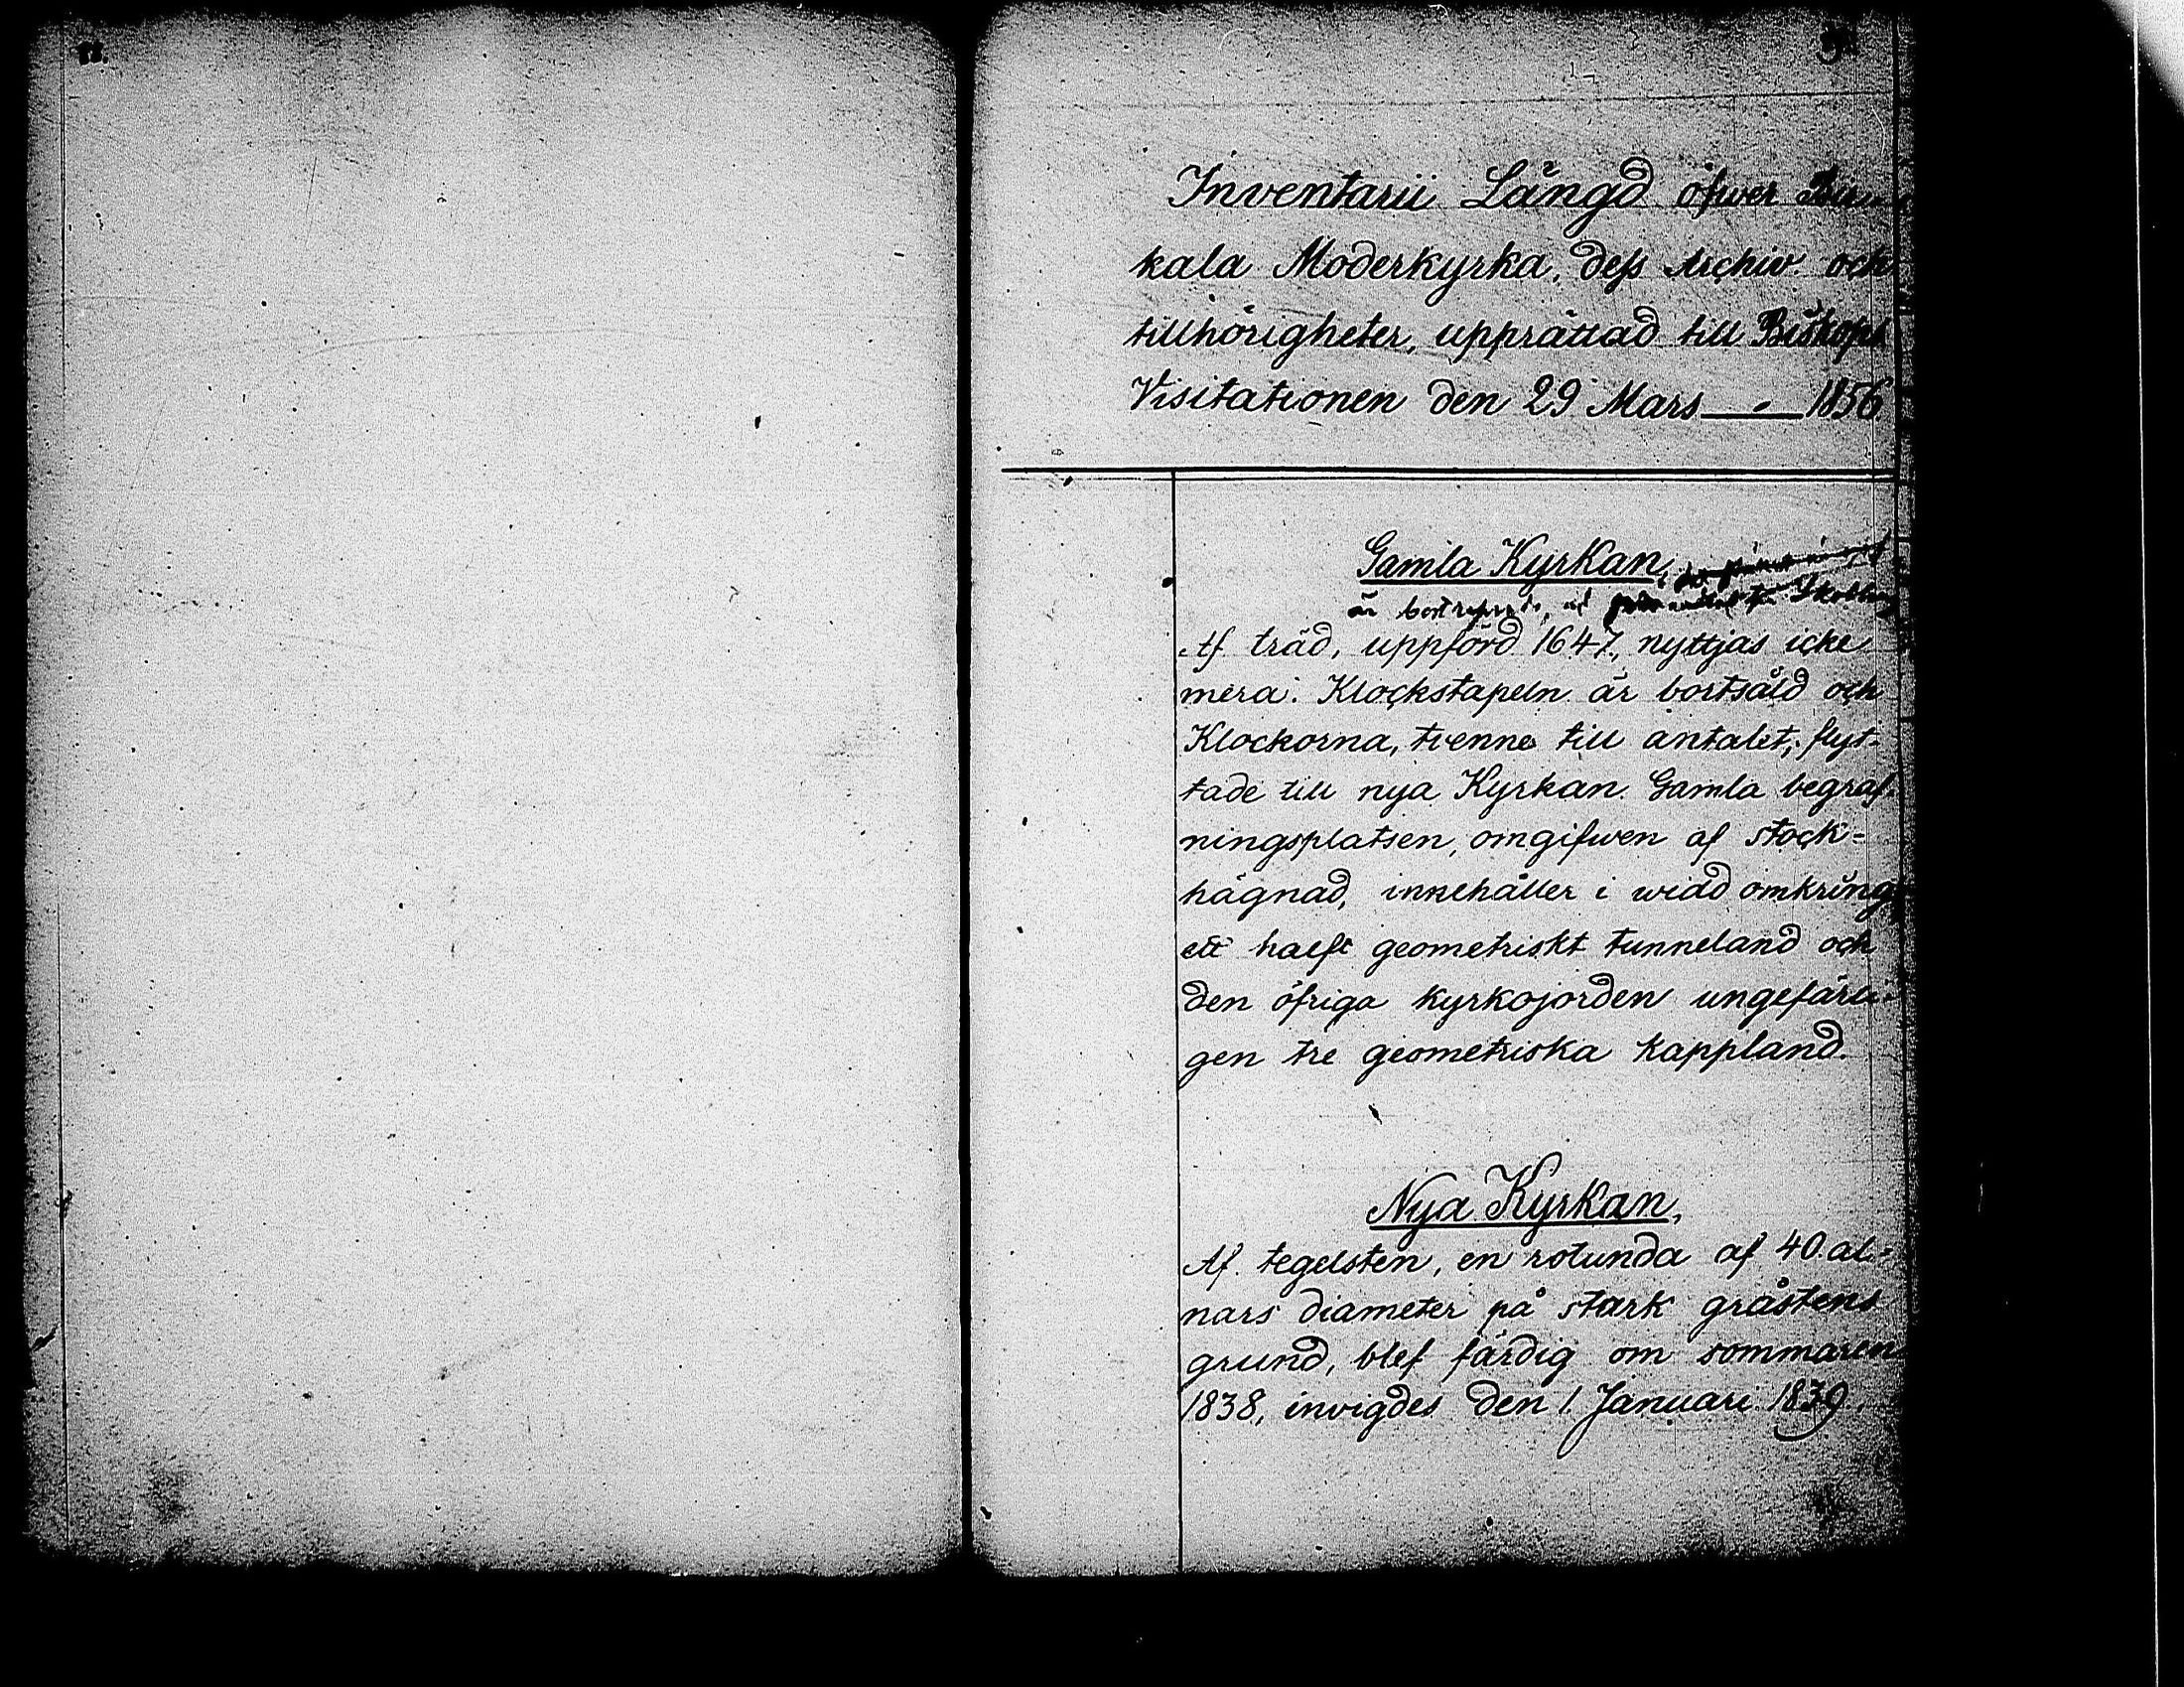 Inventarii Längd öfwer Bir-
kala Moderkyrka, dess Archiv och
tillhörigheter, upprättad till Biskops
Visitationen den 29 Mars — 1856
Gamla Kyrkan,
är
Af träd, uppförd 1647, nyttjas icke
mera. Klockstapeln är bortsåld och
Klockorna, tvenne till antalet, flyt-
tade till nya Kyrkan. Gamla begraf-
ningsplatsen, omgifwen af stock=
hägnad, innehåller i widd omkring
ett halft geometriskt tunneland och
den öfriga kyrkojorden ungefärli-
gen tre geometriska kappland.
Nya Kyrkan,
Af tegelsten, en rotunda af 40 al=
nars diameter på stark gråstens
grund, blef färdig om sommaren
1838, invigdes den 1 Januari 1839.